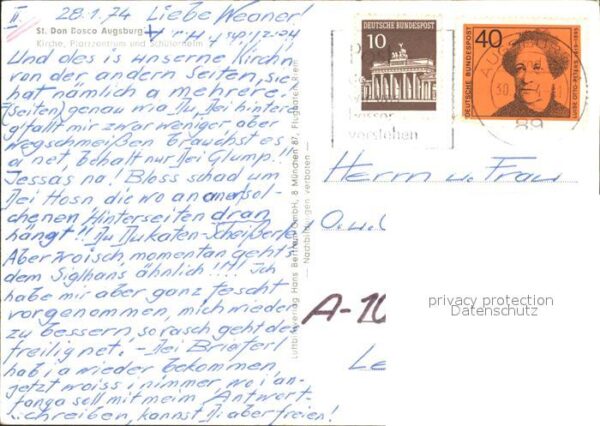 II. 28.1.74 Liebe Weaner!
St. Don Bosco Augsburg
Kirche, Pfarrzentrum und Schülerheim
Und des is unserne Kirchn
von der andern Seiten, sie
hat nämlich a mehrere
(Seiten) genau wia Du, Dei hintere
gfallt mir zwar weniger aber
wegschmeißen brauchst es
a net, behalt nur Dei Glump!!
Jessas na! Bloss schad um
Dei Hosn die wo an
chenen Hinterseiten dran
hängt!! Du Dukaten-Scheißerle
Aber woisch, momentan geht's
dem Siglhans ähnlich!!!! Ich
habe mir aber ganz fescht
vorgenommen, mich wieder
zu bessern, so rasch geht des
freilig net. - Dei Brieferl
hab i a wieder bekommen
jetzt woiss i nimmer wo i an-
fanga soll mit meim Antwort-
schreiben, kannst Di aber freien!
Luftbildverlag Hans Bertram GmbH, 8 München 87, Flughafen Riem
Nachbildungen verboten
10
DEUTSCHE BUNDESPOST
40
DEUTSCHE BUNDESPOST
LOUISE OTTO-PETERS 1819-1895
besser
verstehen
AUGSBURG
30
89
Herrn u. Frau
A-10
privacy protection
Datenschutz